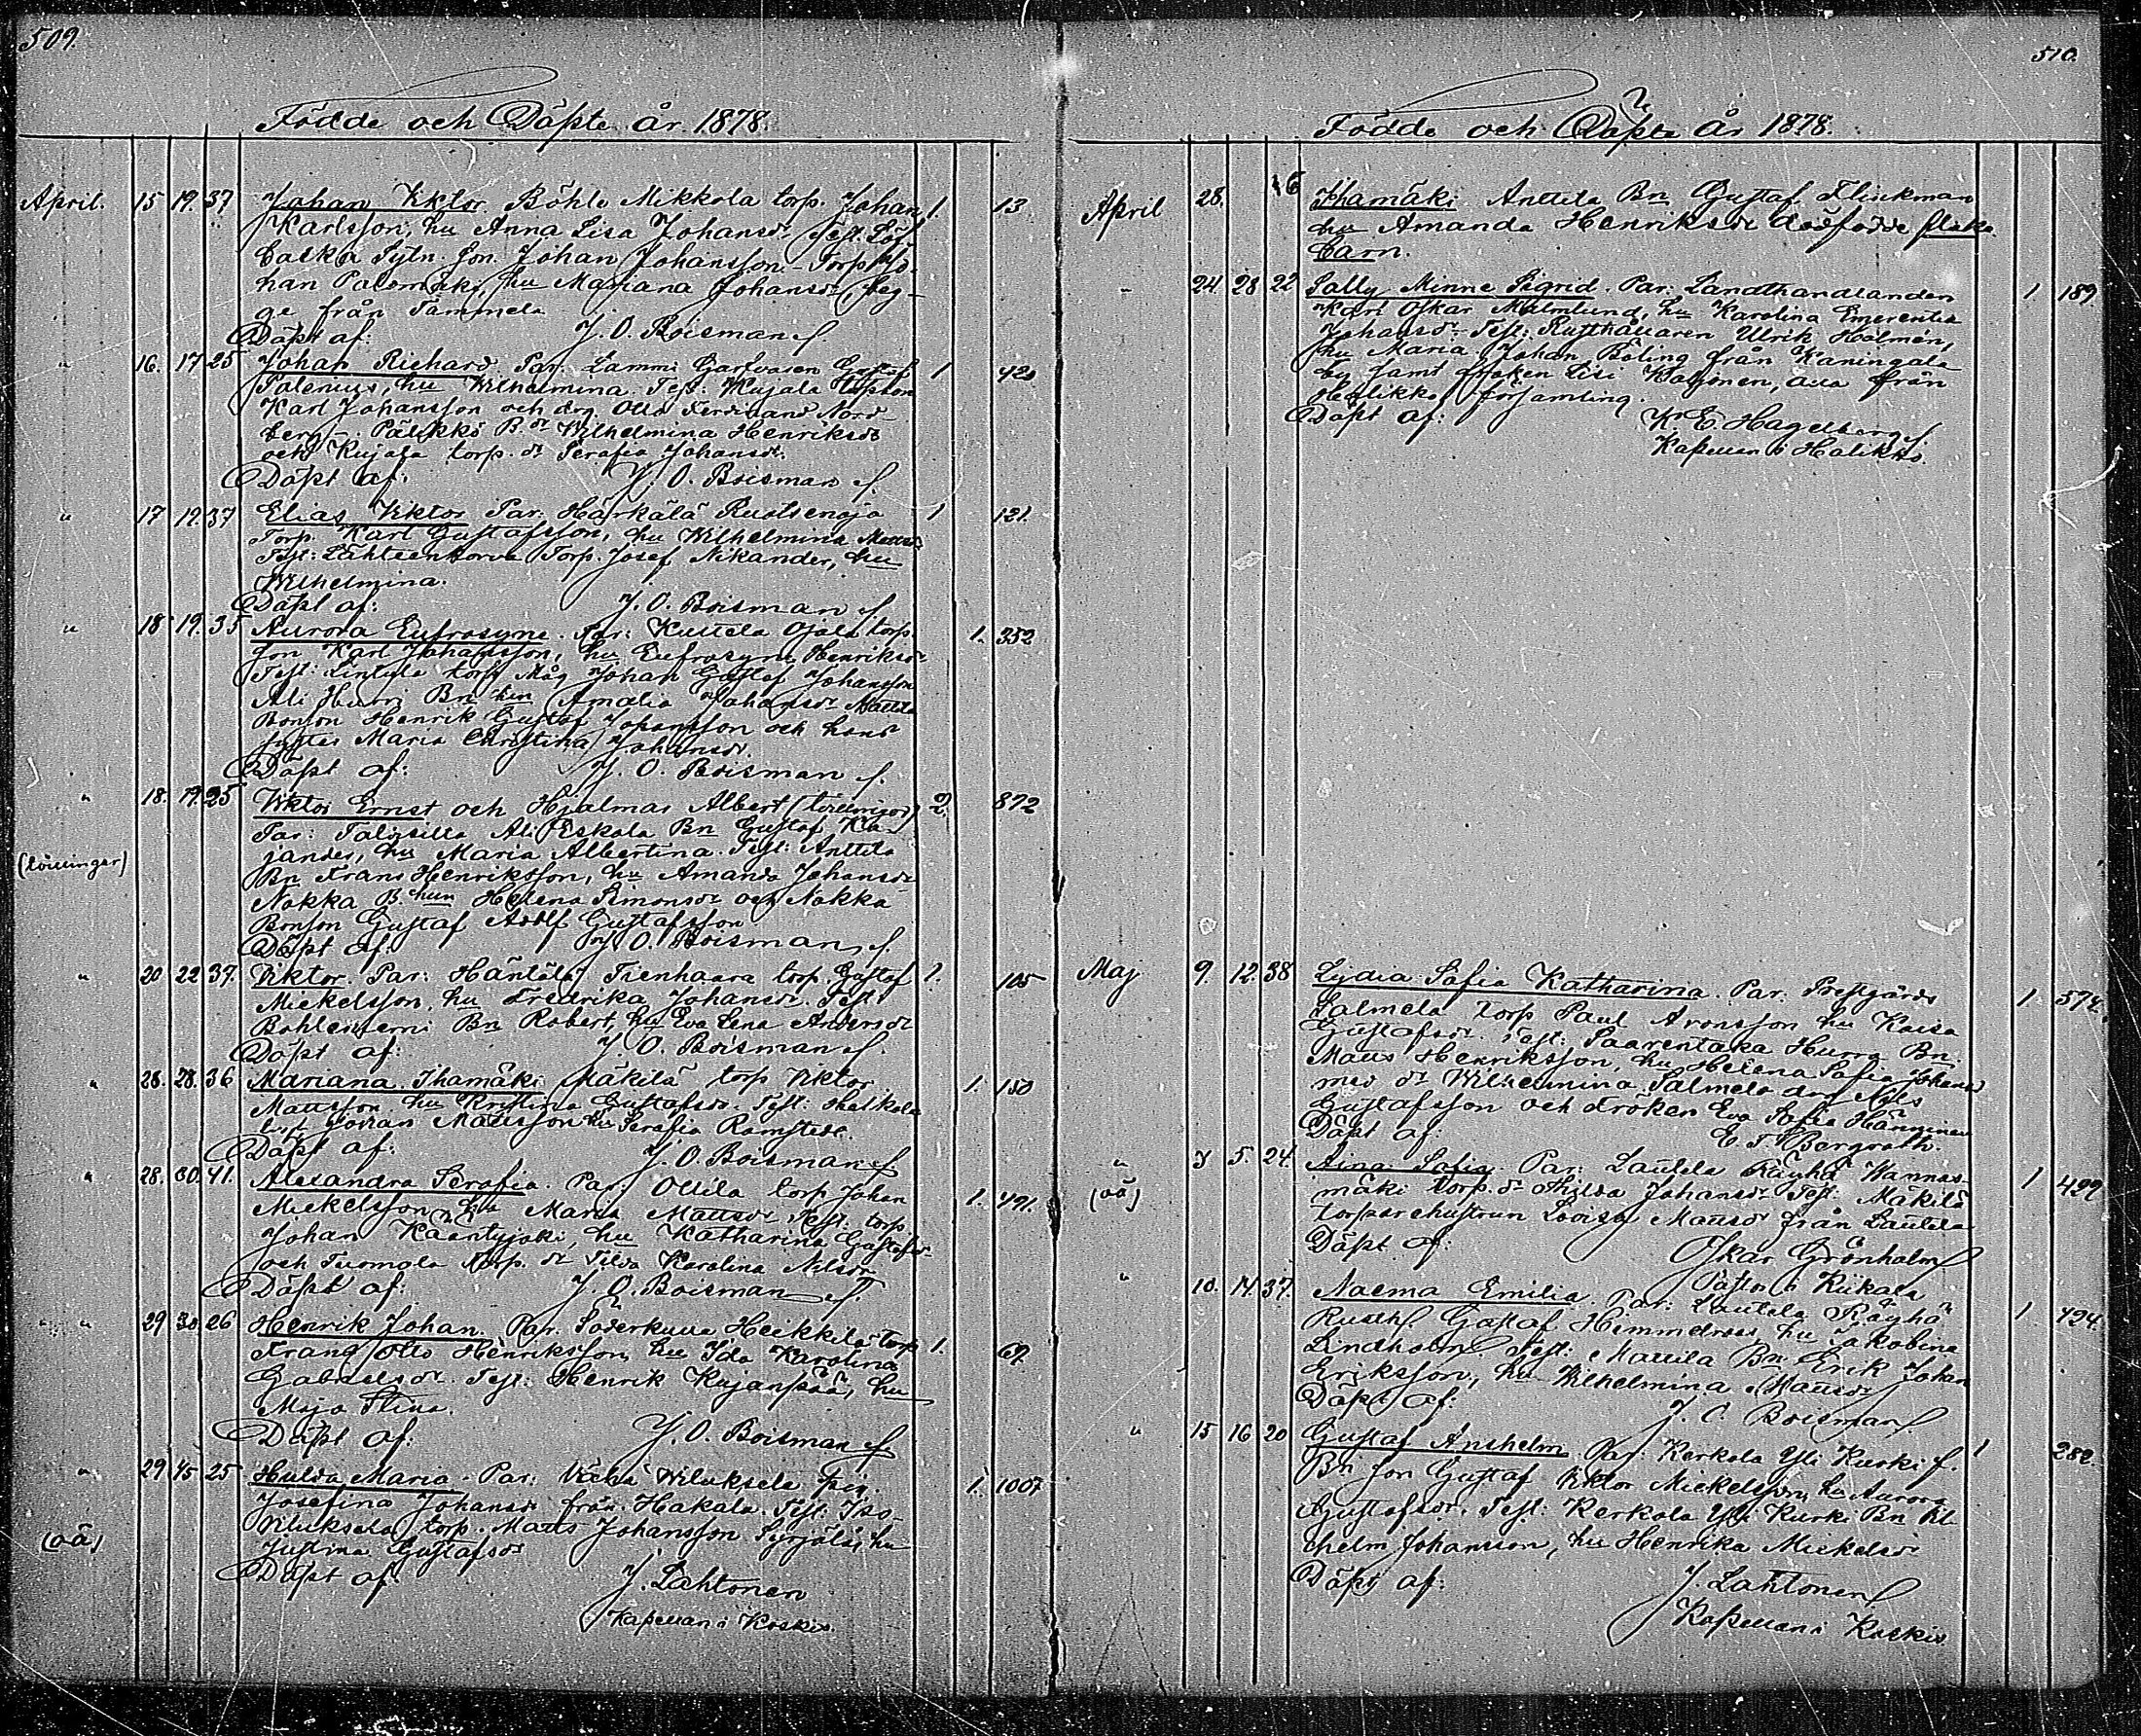 509.
Födde och Döpte år 1878.
April. 15 19. 37 Johan Viktor. Böhle Mikkola torp. Johan 1. 13
Karlsson, hu Anna Lisa Johansdr Test.
Johan Johansson - Torp Jo-
han Palomäki, hu Mariana Johansdr, beg-
ge från Tammela
Döpt af: J. O. Boisman
" 16. 17 25 Johan Richard. Par. Lammi Garfvaren Gustaf 1 420
Palenius, hu Wilhelmina. Test: Kujala
Karl Johansson och drg. Otto Ferdinand Nord-
berg - Pälikkö B. dr Wilhelmina Henriksdr
och Kujala torp. dr Serafia Johansdr.
Döpt af: J. O. Boisman
" 17 19. 37 Elias Viktor Par: Härkälä Ruotsenoja 1 121.
Torp. Karl Gustafsson, hu Wilhelmina Mattsdr
Test: Lähteenkorva Torp. Josef Nikander, hu
Wilhelmina.
Döpt af: J. O. Boisman
" 18 19. 35 Aurora Eufrosyne. Par: Kultela Ojala torp. 1. 352
son Karl Johansson, hu Eufrosyne Henriksdr
Test: Lintula torp. Måg Johan Gustaf Johansson
Ali Hurri Bn hun Amalia Johansdr Mattila
Bonson Henrik Gustaf Johansson och hans
syster Maria Christina Johansdr.
Döpt af: J. O. Boisman
" 18. 19. 25 Viktor Ernst och Hjalmar Albert (tvillingar) 2. 872
Par: Talpsilta Ali Eskola Bn Gustaf Ka-
(tvillingar) jander, hu Maria Albertina. Test: Anttila
Bn Frans Henriksson, hu Amanda Johansdr
Nokka B. hun Helena Simonsdr och Nokka
Bonson Gustaf Adolf Gustafsson
Döpt af: J. O. Boisman
" 20 22 37. Viktor. Par: Häntälä Tienhaara torp. Gustaf 1. 105
Mickelsson, hu Fredrika Johansdr. Test:
Bn Robert, hu Eva Lena Andersdr
Döpt af: J. O. Boisman
" 28. 28. 36 Mariana. Ihamäki Mäkilä torp Viktor 1. 150
Mattsson. hu Kristina Gustafsdr. Test:
Johan Mattsson hu Serafia Ramstedt.
Döpt af: J. O. Boisman
" 28. 30. 41. Alexandra Serafia. Par: Ollila torp Johan 1. 491.
Mickelsson, hu Maria Mattsdr Test: torp.
Johan Kääntyjoki hu Katharina Gustafsdr
och Tuomola Torp. dr Tilda Karolina Nilsdr
Döpt af: J. O. Boisman
" 29 30. 26 Henrik Johan. Par. Söderkulla Heikkilä torp 1. 69.
Frans Otto Henriksson, hu Ida Karolina
Gabrielsdr. Test: Henrik Kujanpää, hu
Maja Stina.
Döpt af: J. O. Boisman
" 29 15 25 Hulda Maria. Par: Vähä Wiluksela pig. 1. 1007
Josefina Johansdr från Hakala. Test: Iso-
(oä) Wiluksela torp. Matts Johansson Syrjälä, hu
Justina Gustafsdr
Döpt af: J. Lahtonen
Kapellan i Koskis.
510.
Födde och Döpte År 1878.
April 28. Ihamäki Anttila Bn Gustaf Flinkman
hu Amanda Henriksdr dödfödde flicke
barn.
" 24. 28 22 Sally Minne Sigrid. Par: Landthandlanden 1 189
Karl Oskar Malmlund, hu Karolina Emerentia
Johansdr Test: Rusthållaren Ulrik Holmén,
hu Maria, Johan Böling från Kaningala
by samt fröken Lisi Kaljonen, alla från
Halikko församling.
Döpt af: K. E. Hagelberg
Kapellan i Halikko.
Maj 9. 12. 38 Lydia Sofia Katharina. Par: Prestgårds 1 574.
Salmela torp Paul Aronsson hu Kaisa
Gustafsdr. Test: Saarentaka Hurri Bn
Matts Henriksson, hu Helena Sofia Johansdr
med dr Wilhelmina Salmela drg Nils
Gustafsson och fröken Eva Sofia Hänninen
Döpt af: E. F. Bergroth.
" 3 5. 24. Aina Sofia. Par: Lautela Räyhä Wannas- 1 499
(oä) mäki torp. dr Hilda Johansdr Test: Mäkilä
torparehustrun Lovisa Mattsdr från Lautela
Döpt af: Oskar Grönholm
Pastor i Kiikala
" 10. 14. 37. Naema Emilia. Par: Lautela Räyhä 1 494.
Rusth. Gustaf Himmelroos, hu Jakobina
Lindholm. Test: Mattila Bn Erik Johan
Eriksson, hu Wilhelmina Mattsdr
Döpt af: J. O. Boisman
" 15 16 20 Gustaf Anshelm. Par: Kerkola Yli Kurki f. 1 282.
Bn son Gustaf Viktor Mickelsson, hu Aurora
Gustafsdr. Test: Kerkola Yli Kurki Bn Vil-
helm Johansson, hu Henrika Mickelsdr
Döpt af: J. Lahtonen
Kapellan i Koskis